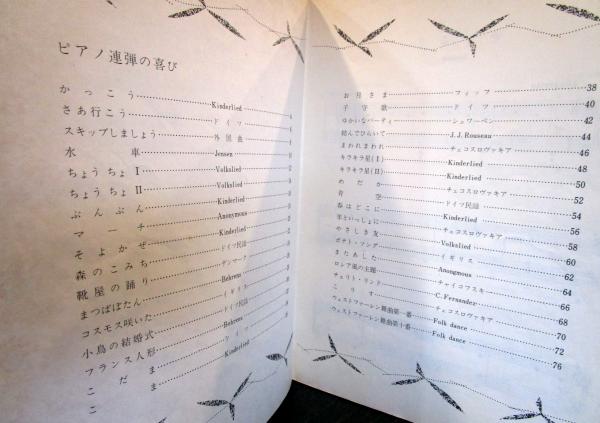 ピアノ連弾の喜び
かっこう Kinderlied
さあ行こう ドイツ
スキップしましょう 外国曲
水車 Jensen
ちょうちょ I Volkslied
ちょうちょ II Volkslied
ぶんぶん Kinderlied
マーチ Anonymous
そよかぜ Kinderlied
森のこみち ドイツ民謡
靴屋の踊り デンマーク
まつばぼたん Behrens
コスモス咲いた イギリス
小鳥の結婚式 ドイツ民謡
フランス人形 Behrens
こだま ドイツ
こ Kinderlied
お月さま フィッフ 38
子守歌 ドイツ 40
ゆかいなパーティ シュワーベン 42
結んでひらいて J.J. Rouseau 44
まわれまわれ チェコスロヴァキア 46
キラキラ星(I) Kinderlied 48
キラキラ星(II) Kinderlied 50
めだか チェコスロヴァキア 52
青空 ドイツ民謡 54
春はどこに Kinderlied 56
羊といっしょに チェコスロヴァキア 58
やさしき友 Volkslied 60
ポテト・ソング イギリス 62
またあした Anongmous 64
ロシア風の主題 チャイコフスキ 66
チェリト・リンド C. Fernandez 68
こりす チェコスロヴァキア 70
ウェストファーレン舞曲第一番 Folk dance 72
ウェストファーレン舞曲第十番 Folk dance 76